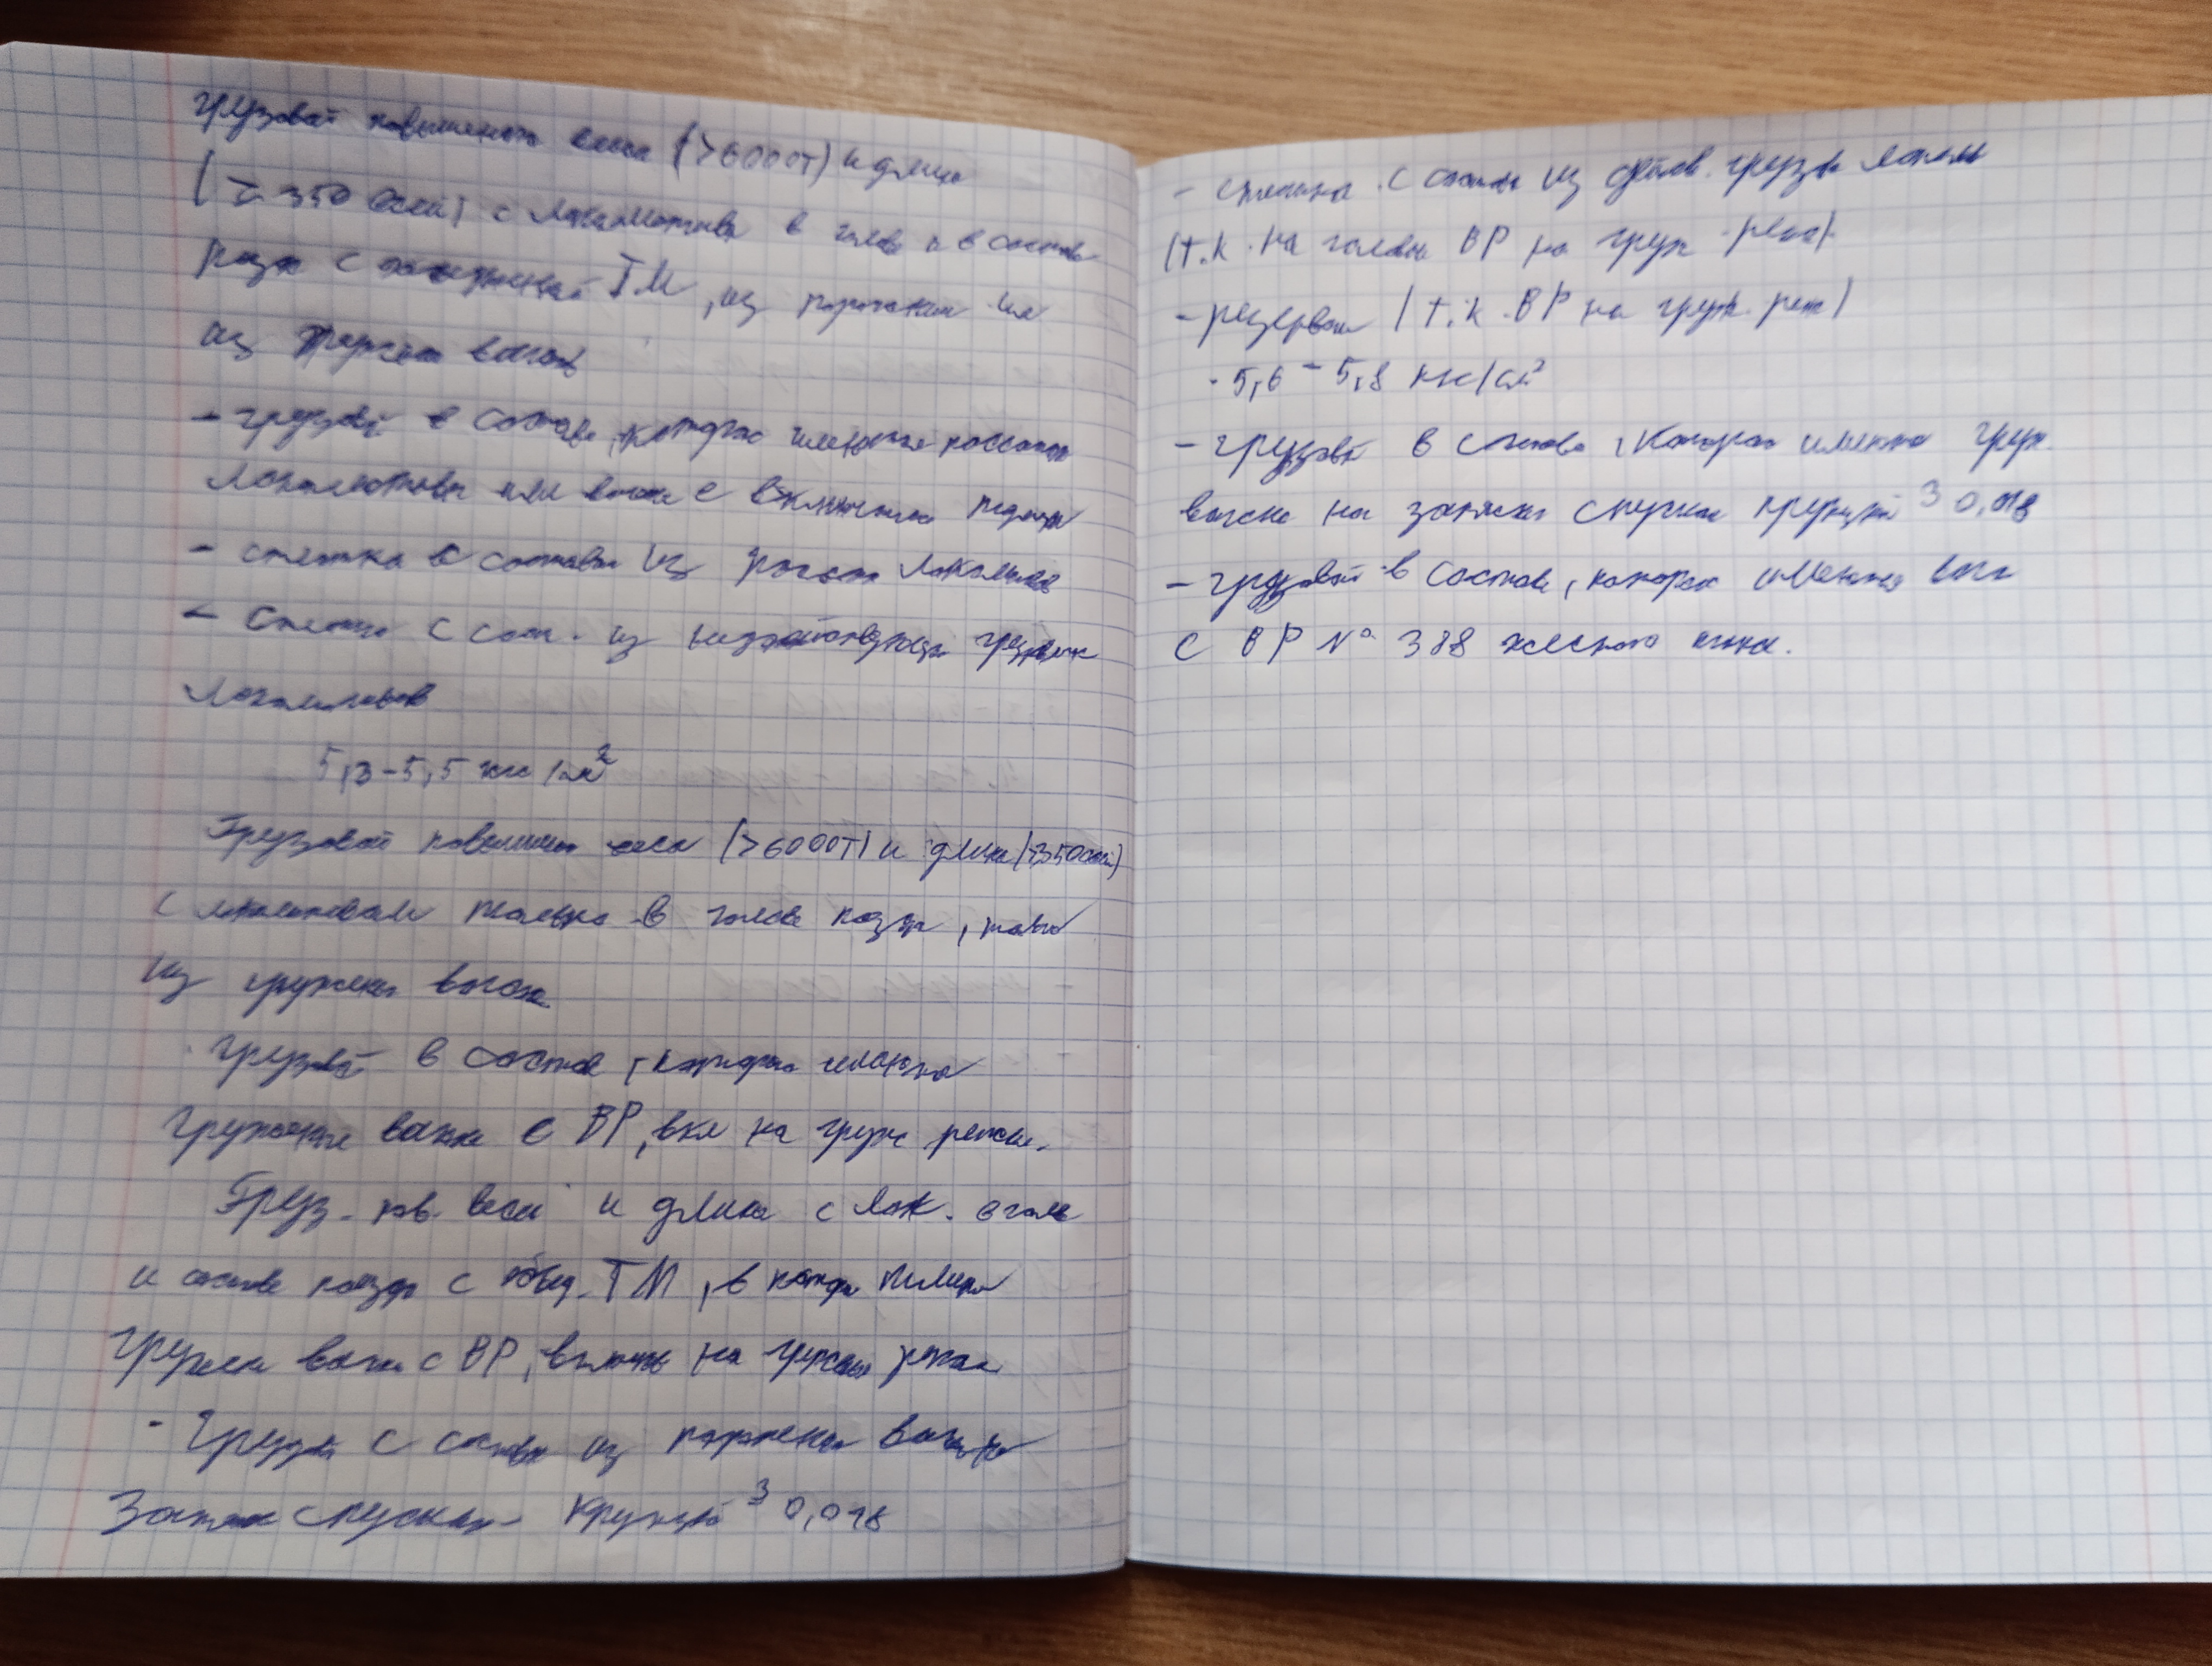 грузовой повышенного веса (>6000т) и длины
(≥ 350 осей) с локомотивами в голов и в составе
поезд с объединенной ТМ, из порожних или
из груженых вагонов
- грузовой в составе, которого имеются пассажир
локомотивы или вагоны с включенными
- сплотка в составе из локомотивов
- Сплотка с сост. из недействующих грузовых
локомотивов
5,3-5,5 кгс/см²
Грузовой повышенного веса (>6000т) и длины (≥350осей)
с локомотивами только в голове поезда,
из груженых вагонов
грузовой в составе, которого имеются
груженые вагоны с ВР, вкл на груж режим.
Груз. пов. веса и длины с лок. в голове
и составе поезда с объед. ТМ, в котором
груженые вагоны с ВР, на груженый режим
- грузовой с составом из порожних вагонов на
Затяжных спусках крутизной 3 0,018
- сплотка с составом из действ. грузовых локомотив
(т.к. на голове ВР на груж режим)
- резервом (т.к. ВР на груж. реж)
- 5,6 - 5,8 кгс/см²
- грузовой в составе, которого имеются груж.
вагоны на затяжных спусках крутизной 3 0,018
- грузовой в составе, которого имеются ваг
с ВР № 388 жесткого типа.